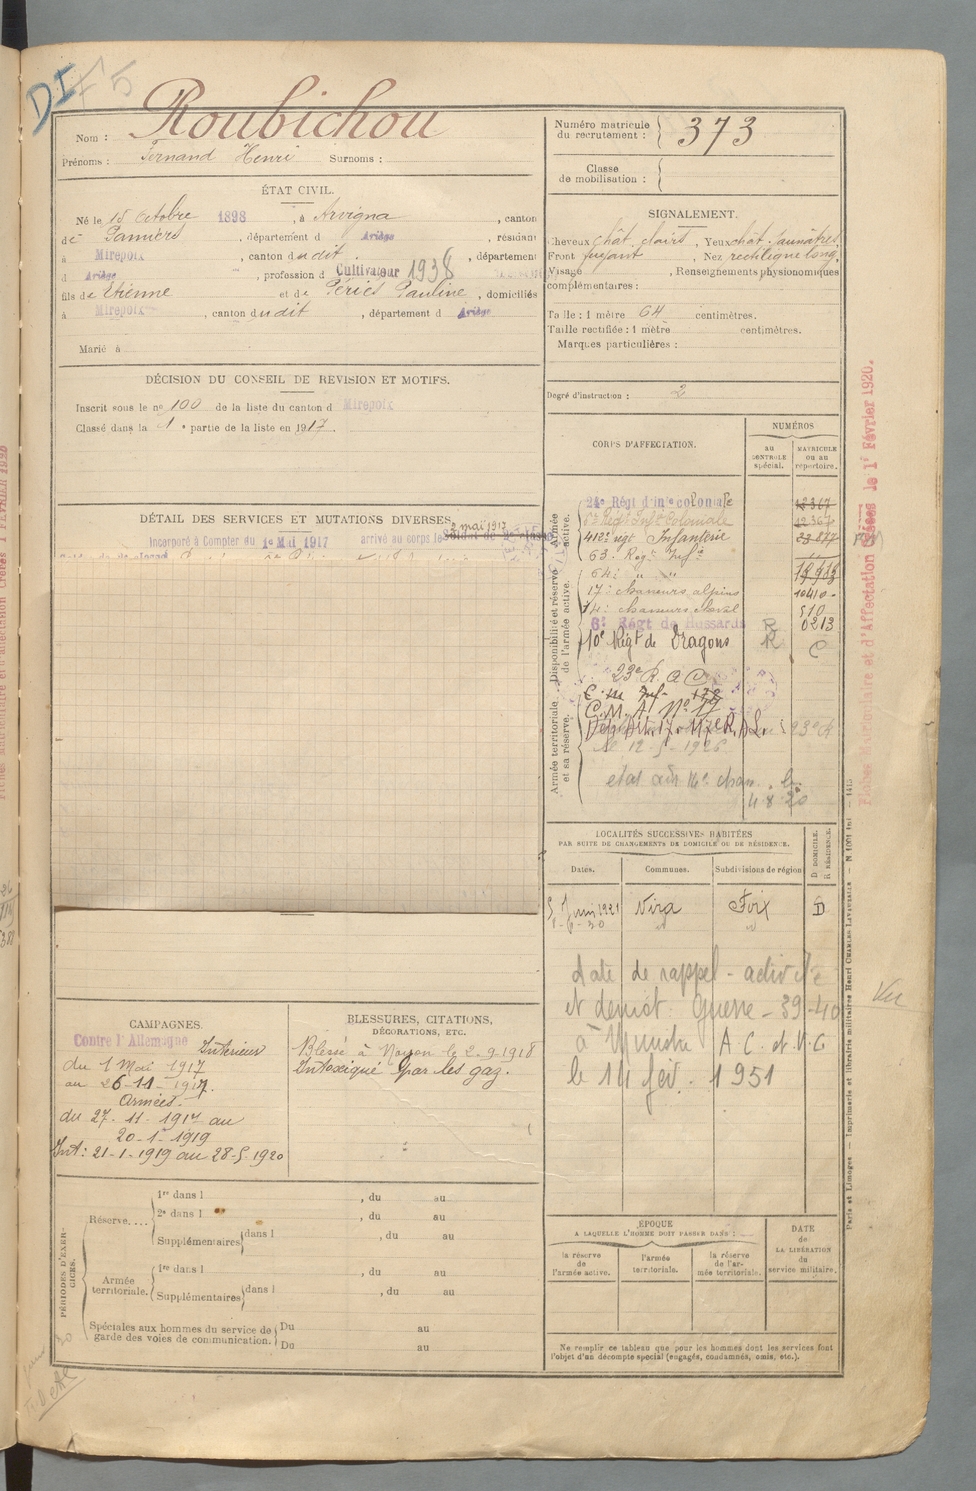 DI F5
Nom : Roubichou
Prénoms : Fernand Henri Surnoms :
ÉTAT CIVIL.
Né le 15 Octobre 1898, à Arvigna, canton
de Pamiers, département d Ariège, résidant
à Mirepoix, canton dudit, département
d Ariège, profession d Cultivateur 1938
fils de Etienne et de Périès Pauline, domiciliés
à Mirepoix, canton dudit, département d Ariège
Marié à
DÉCISION DU CONSEIL DE REVISION ET MOTIFS.
Inscrit sous le no 100 de la liste du canton d Mirepoix
Classé dans la 1e partie de la liste en 1917.
DÉTAIL DES SERVICES ET MUTATIONS DIVERSES.
2 mai 1917
Incorporé à Compter du 1e Mai 1917 arrivé au corps le
CAMPAGNES.
Contre l'Allemagne Intérieur
du 1 Mai 1917
au 26-11-1917.
Armées.
du 27-11-1917 au
20-1-1919
Int: 21-1-1919 au 28-5-1920
BLESSURES, CITATIONS,
DÉCORATIONS, ETC.
Blessé à Noyon le 2-9-1918
Intoxiqué par les gaz.
PÉRIODES D'EXERCICES.
Réserve....
1re dans l , du au
2e dans l , du au
Supplémentaires dans l , du au
Armée territoriale.
1re dans l , du au
Supplémentaires dans l , du au
Spéciales aux hommes du service de garde des voies de communication.
Du au
Du au
Numéro matricule du recrutement : 373
Classe de mobilisation :
SIGNALEMENT.
Cheveux chât. clairs, Yeux chât. jaunâtres,
Front fuyant, Nez rectiligne long,
Visage , Renseignements physionomiques
complémentaires :
Taille : 1 mètre 64 centimètres.
Taille rectifiée : 1 mètre centimètres.
Marques particulières :
Degré d'instruction : 2
CORPS D'AFFECTATION.
NUMÉROS
au CONTROLE spécial.
MATRICULE ou au répertoire.
Armée active.
Disponibilité et réserve de l'armée active.
Armée territoriale et sa réserve.
24e Régt d'Infe coloniale 12367
Regt Infie Coloniale 12367
41e: régt Infanterie 23877
63. Regt Infie
64: " "
17: chasseurs alpins 10410
14: chasseurs cheval 510
6e Régt de Hussards R 0213
10e Régt de Dragons R C
23e R A C
C.M.A. No 17
Le 12-5-1926
LOCALITÉS SUCCESSIVES HABITÉES
PAR SUITE DE CHANGEMENTS DE DOMICILE OU DE RÉSIDENCE.
Dates. Communes. Subdivisions de région D. DOMICILE. R. RÉSIDENCE.
5 Juin 1921 Vira Foix D
date de rappel - activité
et démob. Guerre - 39-40
à Ministre A.C. et V.G
le 14 fév. 1951
Vu
ÉPOQUE
A LAQUELLE L'HOMME DOIT PASSER DANS :
la réserve de l'armée active.
l'armée territoriale.
la réserve de l'armée territoriale.
DATE de LA LIBÉRATION du service militaire.
Ne remplir ce tableau que pour les hommes dont les services font
l'objet d'un décompte spécial (engagés, condamnés, omis, etc.).
Fiches Matriculaire et d'Affectation Créées le 1r Février 1920.
Paris et Limoges. — Imprimerie et librairie militaires Henri CHARLES-LAVAUZELLE